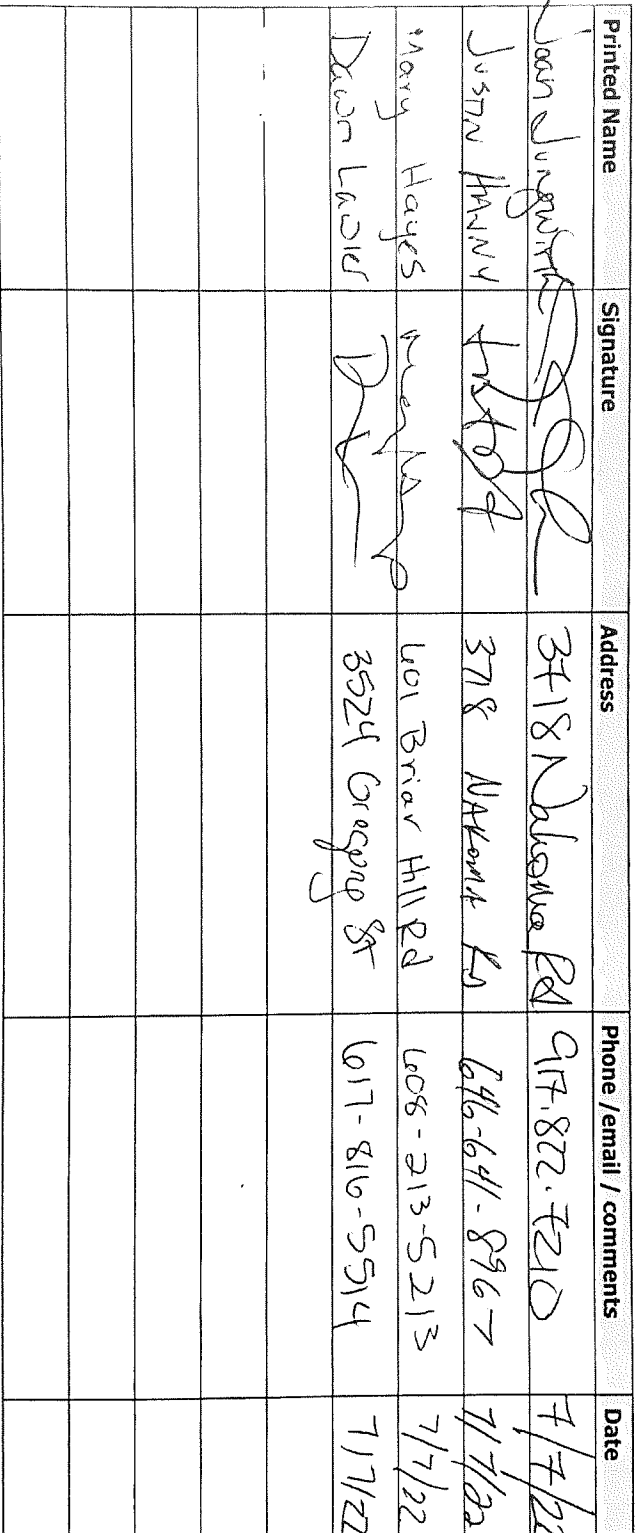 Printed Name Signature Address Phone /email / comments Date
Joan Jungwirth 3718 Nakoma Rd 917.822.7210 7/7/22
JUSTIN HANNY 3718 NAKOMA RD 646-641-8967 7/7/22
Mary Hayes 601 Briar Hill Rd 608-213-5213 7/7/22
Dawn Lawler 3524 Gregory St 617-816-5514 7/7/22